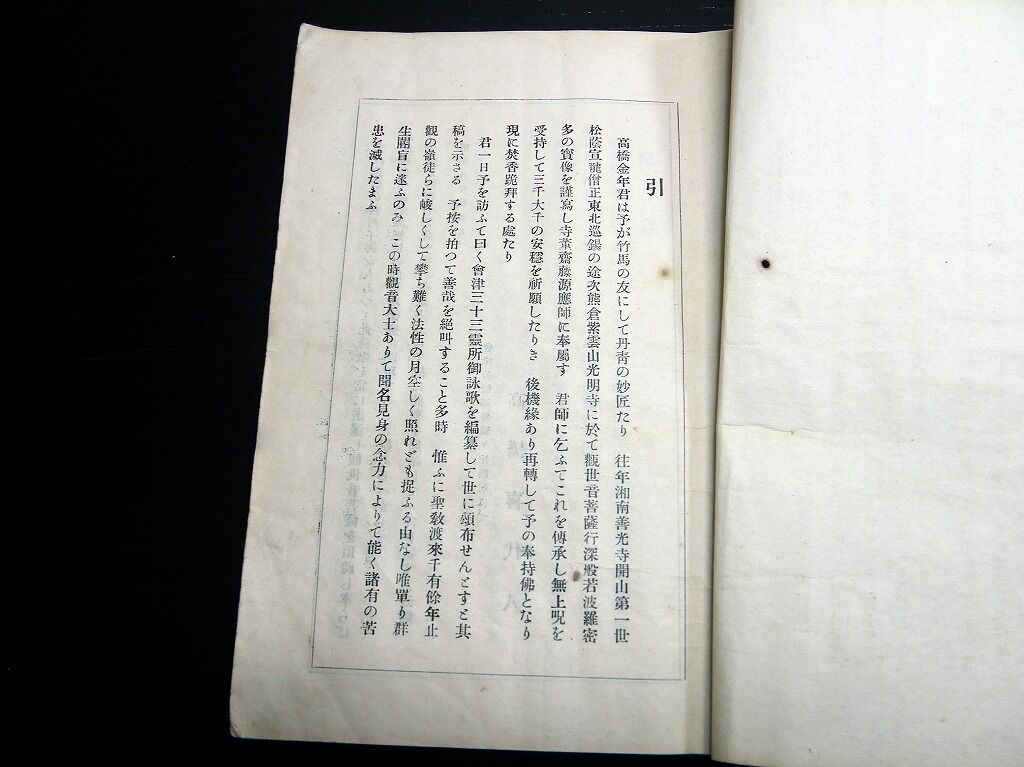 引
高橋金年君は予が竹馬の友にして丹靑の妙匠たり 往年湘南善光寺開山第一世
松蔭宣龍僧正東北巡錫の途次熊倉紫雲山光明寺に於て觀世音菩薩行深般若波羅密
多の寶像を謹寫し寺董齋藤源應師に奉屬す 君師に乞ふてこれを傳承し無上呪を
受持して三千大千の安穩を祈願したりき 後機緣あり再轉して予の奉持佛となり
現に焚香跪拜する處たり
君一日予を訪ふて曰く會津三十三靈所御詠歌を編纂して世に頒布せんとすと其
稿を示さる 予按を拍つて善哉を絕叫すること多時 惟ふに聖敎渡來千有餘年止
觀の嶺徒らに峻しくして攀ぢ難く法性の月空しく照れども捉ふる由なし唯單り群
生闇盲に迷ふのみ この時觀音大士ありて聞名見身の念力によりて能く諸有の苦
患を滅したまふ